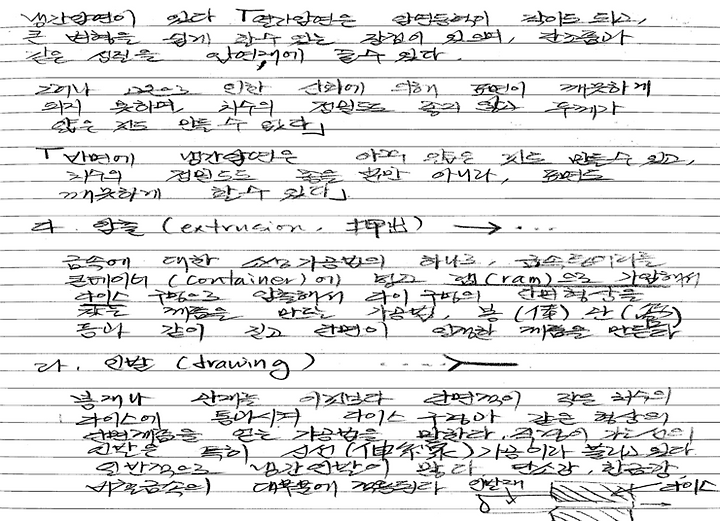 냉간압연이 있다 「열간압연은 압연동력이 적어도 되고,
큰 변형을 쉽게 할 수 있는 장점이 있으며, 단조품과
같은 성질을 압연재에 줄 수 있다.
그러나 고온으로 인한 산화에 의해 표면이 깨끗하게
되지 못하며, 치수의 정밀도도 좋지 않고 두께가
얇은 것도 만들 수 없다」
「반면에 냉간압연은 아주 얇은 것도 만들 수 있고,
치수의 정밀도도 좋을 뿐만 아니라, 표면도
깨끗하게 할 수 있다」
다. 압출 (extrusion, 押出) → ...
금속에 대한 소성가공법의 하나로, 금속덩어리를
콘테이너 (container)에 넣고 램(ram)으로 가압해서
다이스 구멍으로 압출해서 다이 구멍의 단면형상을
갖는 제품을 만드는 가공법, 봉(棒) 관
등과 같이 길고 단면이 일정한 제품을 만든다
라. 인발 (drawing) ...
봉재나 관재를 이것보다 단면적이 작은 치수의
다이스에 통과시켜 다이스 구멍과 같은 형상의
단면제품을 얻는 가공법을 말한다. 가는 선의
인발은 특히 신선(伸線)가공이라 불리고 있다
일반적으로 냉간인발이 많다 탄소강, 합금강
비철금속의 대부분에 적용된다 인발재 다이스